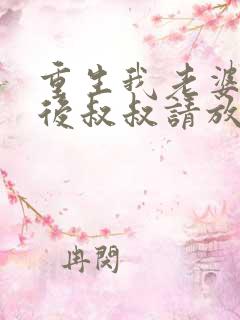 重生我老婆
後叔叔請放
冉閔